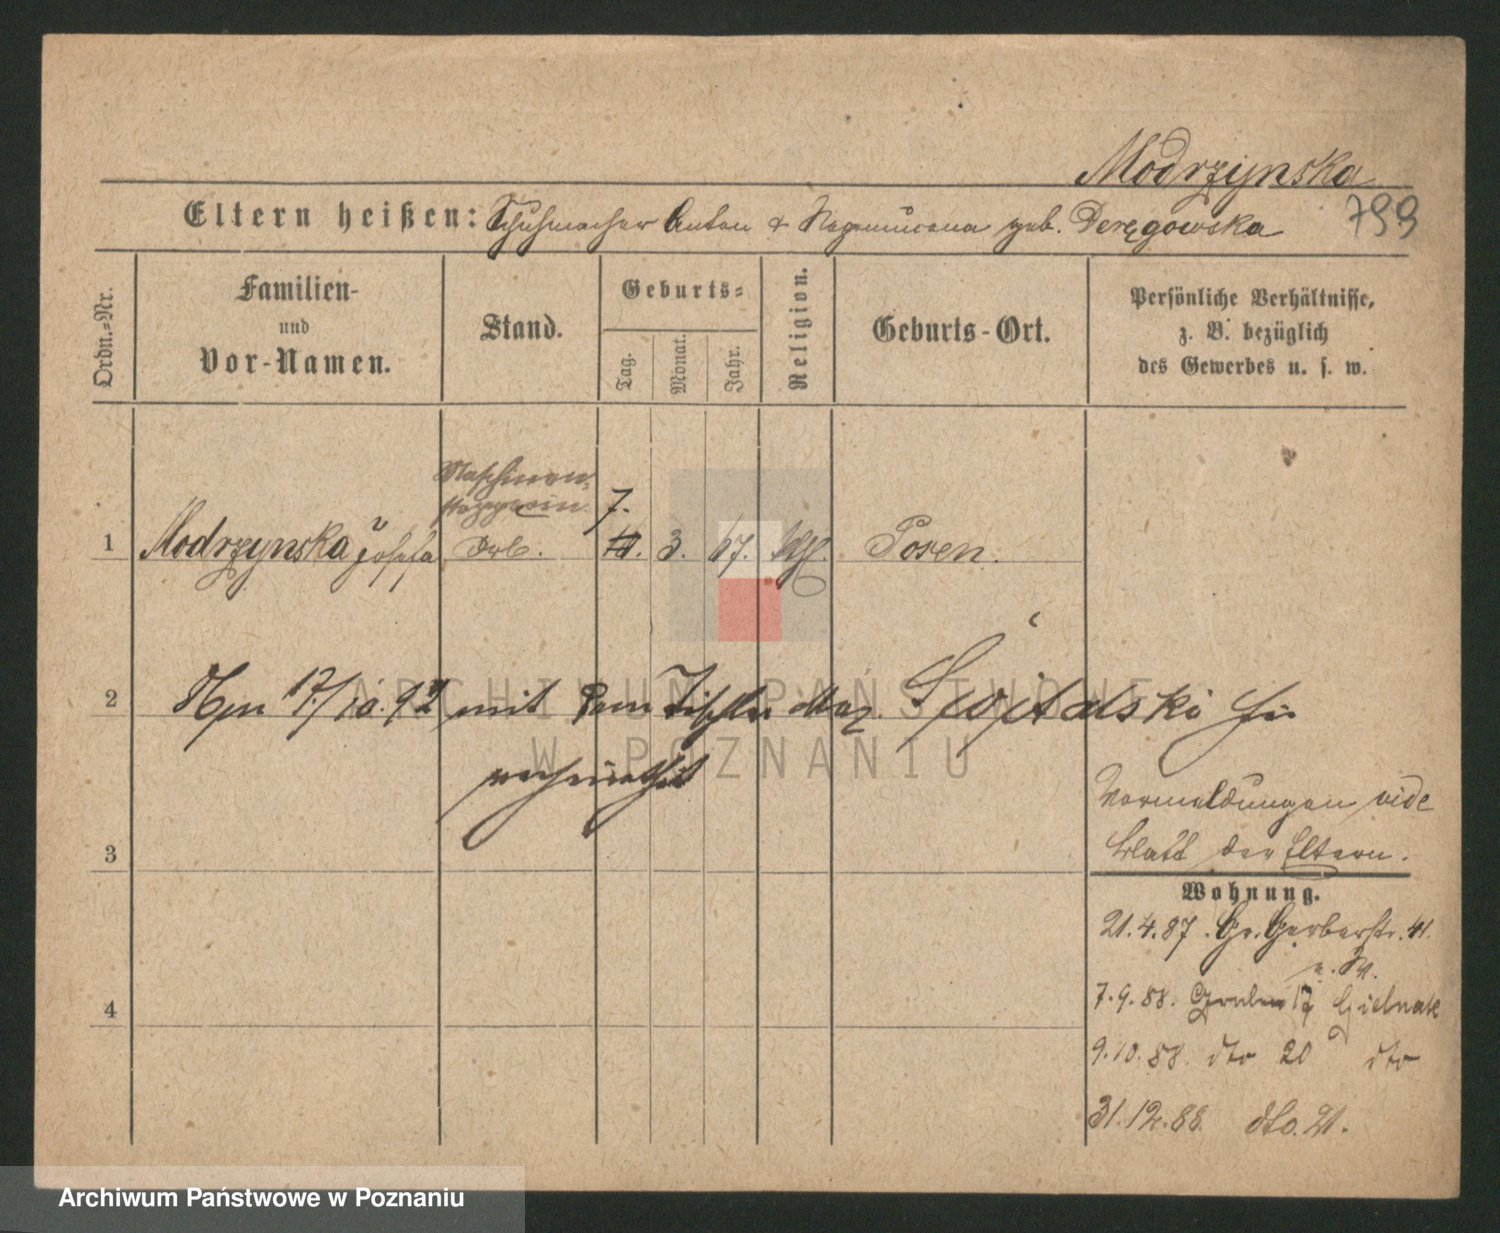 Modrzynska
799
Eltern heißen: Schuhmacher Anton & Nepomucena geb. Deręgowska
Ordn.=Nr.
Familien- und Vor-Namen.
Stand.
Geburts=
Tag.
Monat.
Jahr.
Religion.
Geburts-Ort.
Persönliche Verhältnisse,
z. B. bezüglich
des Gewerbes u. s. w.
Maschinen=
7.
1 Modrzynska Josefa 3. 67. Posen.
2 17./10. 92 mit dem Tischler
verheirathet
Vermeldungen vide
3 Blatt der Eltern.
Wohnung.
21.4.87. Gr. Gerberstr. 41.
7.9.88. Graben 12
4
9.10.88. dto 20 dto
31.12.88. dto. 21.
ARCHIWUM PAŃSTWOWE
W POZNANIU
Archiwum Państwowe w Poznaniu